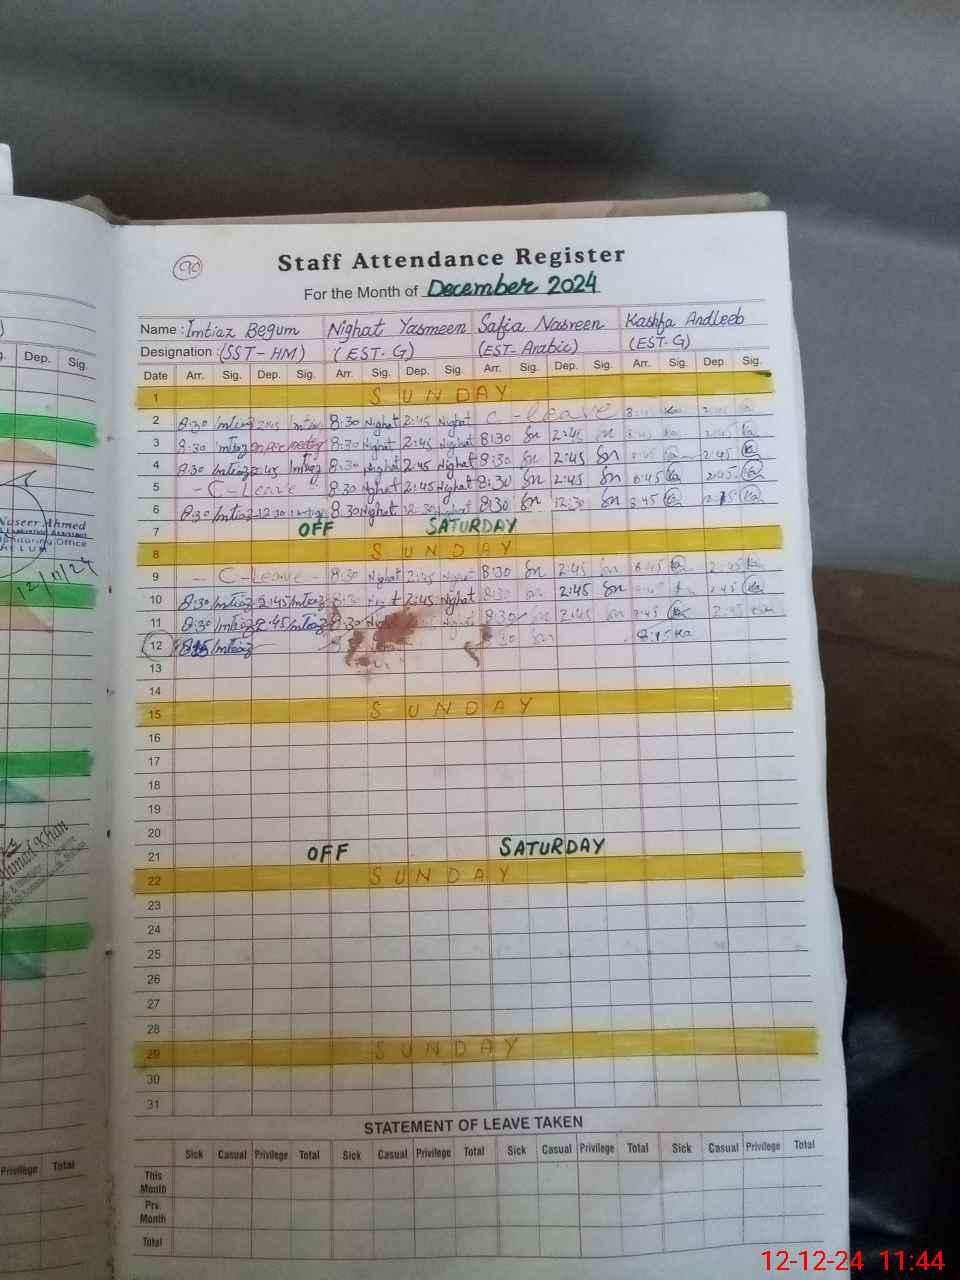 90
Staff Attendance Register
For the Month of December 2024
Name : Imtiaz Begum Nighat Yasmeen Safia Nasreen Kashfa Andleeb
Designation : (SST-HM) (EST-G) (EST-Arabic) (EST-G)
Dep. Sig.
Date Arr. Sig. Dep. Sig. Arr. Sig. Dep. Sig. Arr. Sig. Dep. Sig. Arr. Sig. Dep. Sig.
1 SUNDAY
2 8:30 Imtiaz 2:45 Imtiaz 8:30 Nighat 2:45 Nighat C-leave
3 8:30 Imtiaz 8:30 Nighat 2:45 Nighat 8:30 Sn 2:45 Sn 2:45 Ka
4 8:30 Imtiaz 2:45 Imtiaz 8:30 Nighat 2:45 Nighat 8:30 Sn 2:45 Sn 2:45 Ka
5 - C-Leave 8:30 Nighat 2:45 Nighat 8:30 Sn 2:45 Sn 8:45 Ka 2:45 Ka
6 8:30 Imtiaz 12:30 8:30 Nighat 12:30 Nighat 8:30 Sn 12:30 Sn 8:45 Ka Ka
7 OFF SATURDAY
8 SUNDAY
9 - C-Leave - 8:30 Nighat 2:45 Nighat 8:30 Sn 2:45 Sn 8:45 Ka 2:45 Ka
10 8:30 Imtiaz 2:45 Imtiaz 2:45 Nighat 8:30 Sn 2:45 Sn 2:45 Ka
11 8:30 Imtiaz 2:45 Imtiaz 8:30 8:30 Sn 2:45 Sn Ka
12 Imtiaz Sn 8:45 Ka
13
14
15 SUNDAY
16
17
18
19
20
21 OFF SATURDAY
22 SUNDAY
23
24
25
26
27
28
29 SUNDAY
30
31
Naseer Ahmed
Monitoring Office
JHELUM
12/11/24
Ahmad Khan
STATEMENT OF LEAVE TAKEN
Privilege Total
Sick Casual Privilege Total Sick Casual Privilege Total Sick Casual Privilege Total Sick Casual Privilege Total
This Month
Prv. Month
Total
12-12-24 11:44